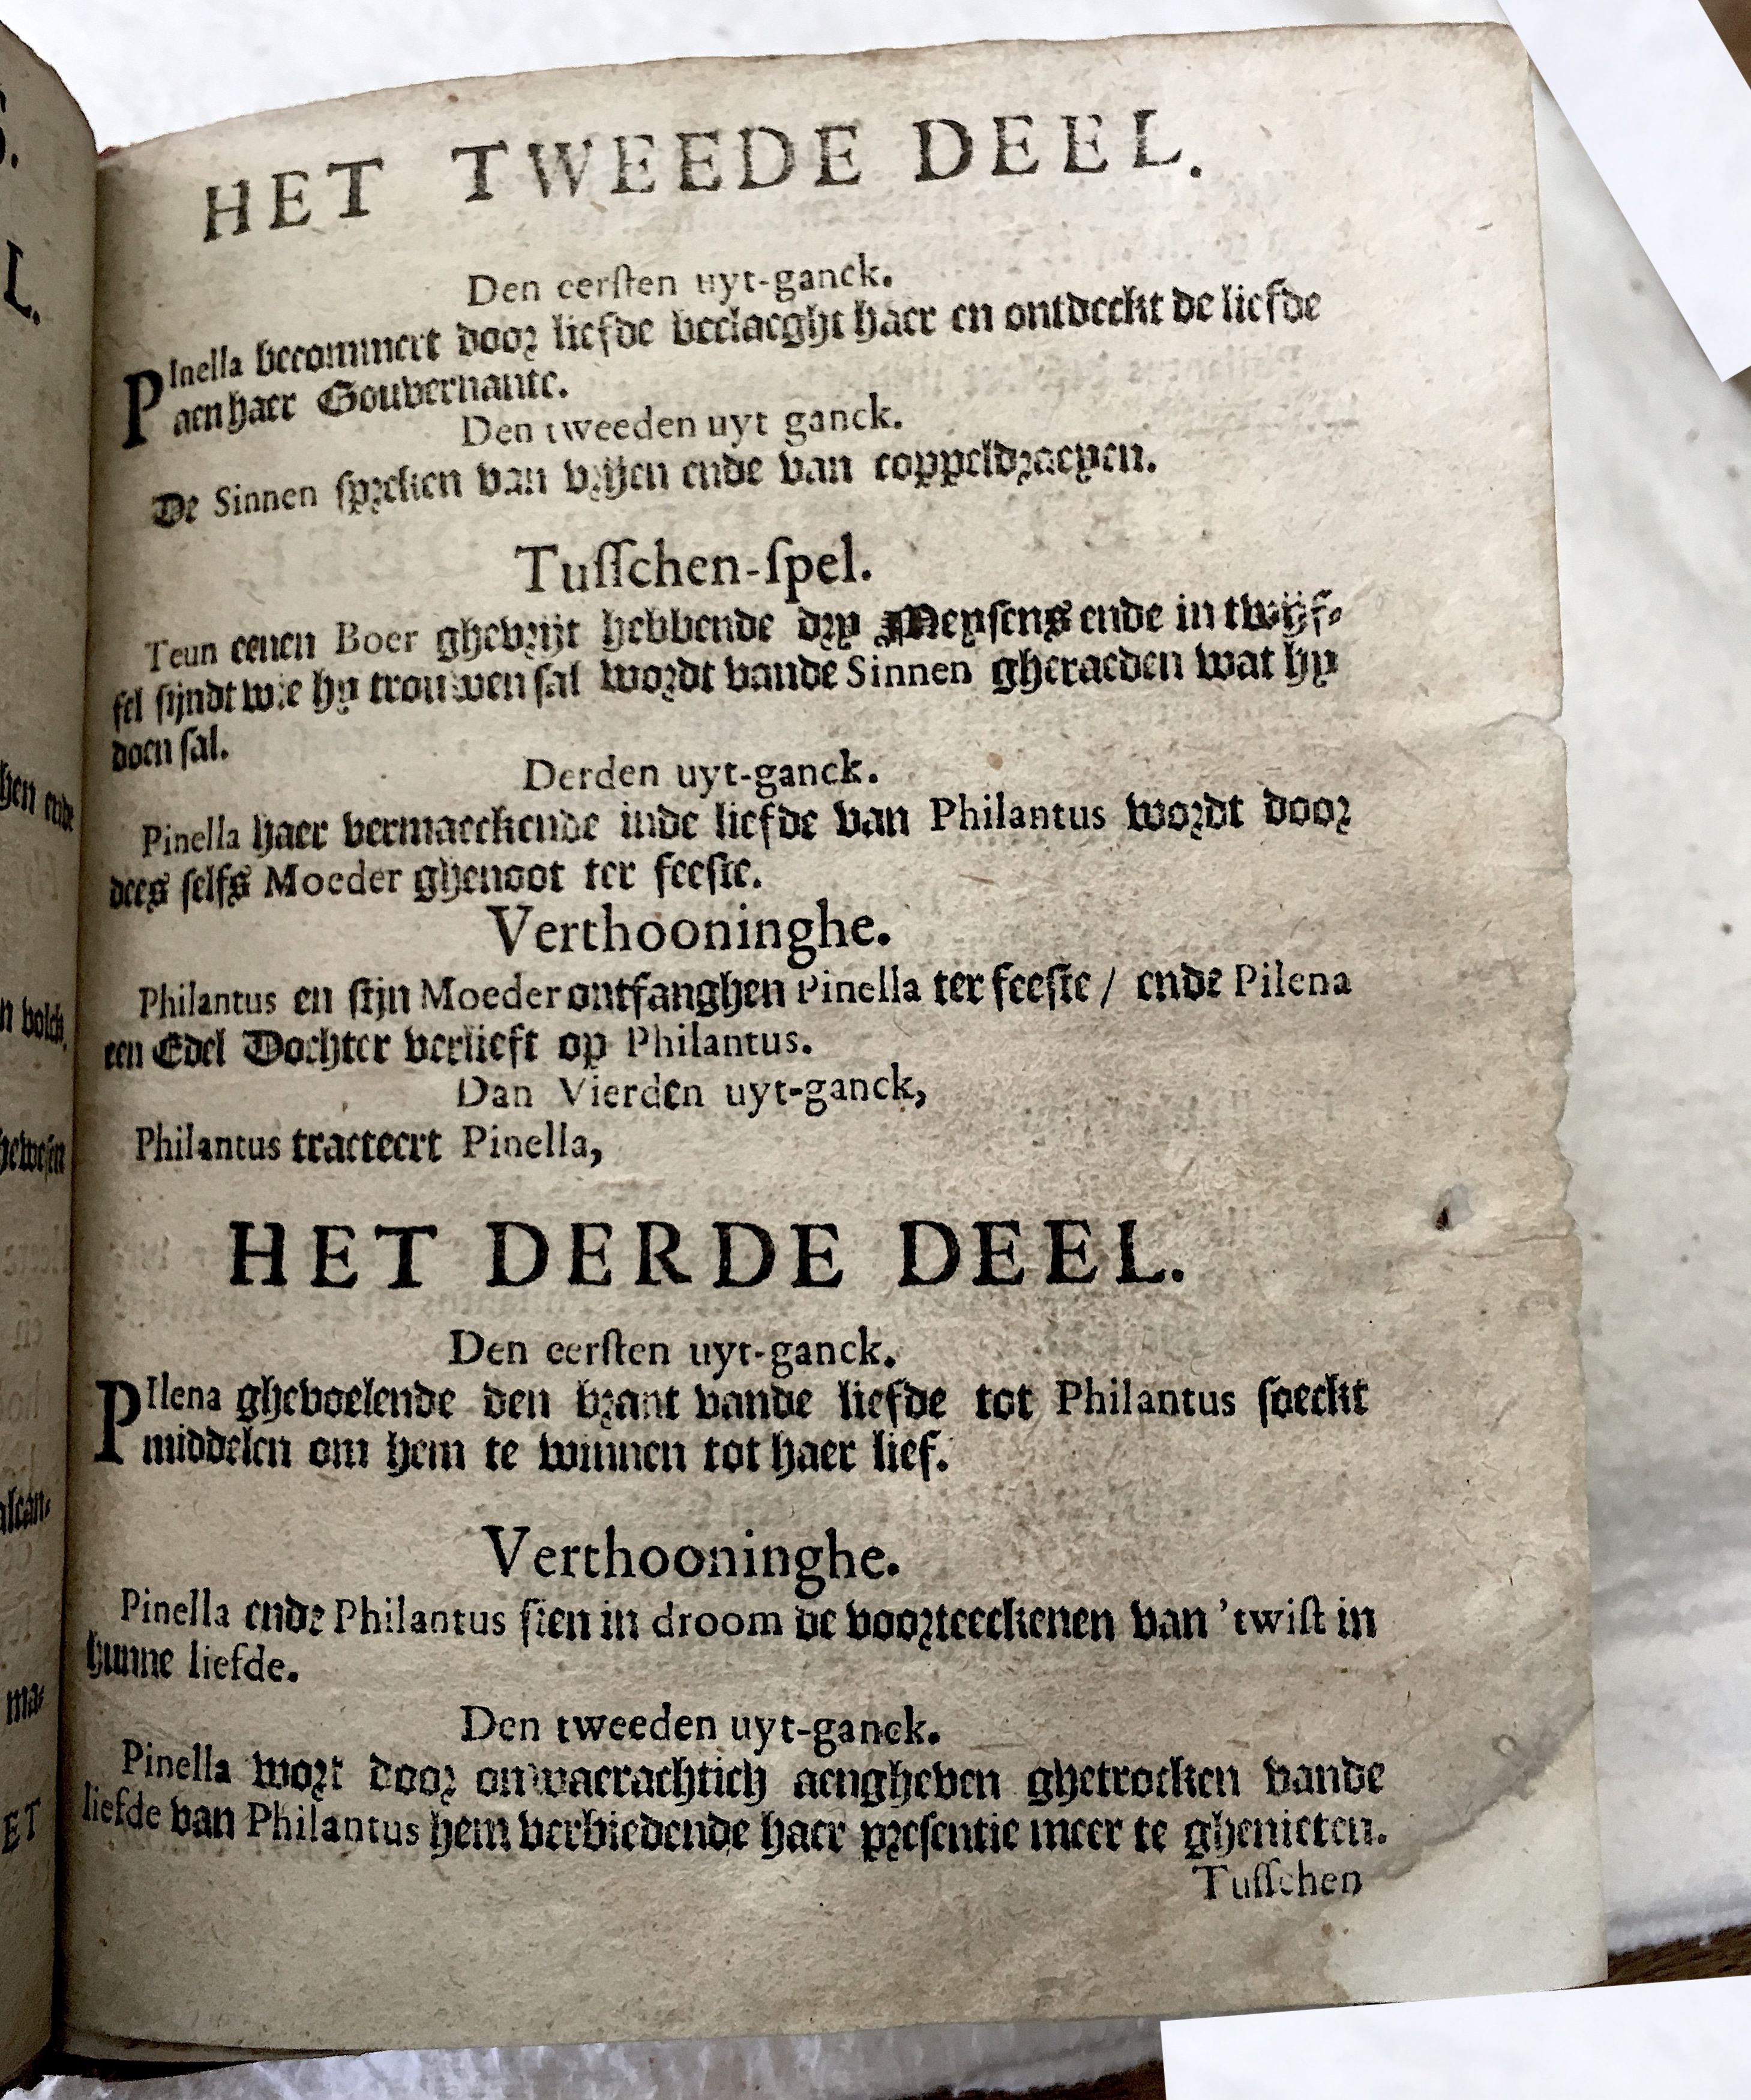 HET TWEEDE DEEL.
Den eerſten uyt-ganck.
PInella becommert door liefde beclaeght haer en ontdeckt de liefde
aen haer Gouvernante.
Den tweeden uyt ganck.
De Sinnen ſpreken van vrijen ende van coppeldraeyen.
Tuſſchen-ſpel.
Teun eenen Boer ghevrijt hebbende dry Meyſens ende in twijf-
fel ſijndt wie hy trouwen ſal wordt vande Sinnen gheraeden wat hy
doen ſal.
Derden uyt-ganck.
Pinella haer vermaeckende inde liefde van Philantus wordt door
dees ſelfs Moeder ghenoot ter feeſte.
Verthooninghe.
Philantus en ſijn Moeder ontfanghen Pinella ter feeſte / ende Pilena
een Edel Dochter verlieft op Philantus.
Dan Vierden uyt-ganck,
Philantus tracteert Pinella,
HET DERDE DEEL.
Den eerſten uyt-ganck.
PIlena ghevoelende den brant vande liefde tot Philantus ſoeckt
middelen om hem te winnen tot haer lief.
Verthooninghe.
Pinella ende Philantus ſien in droom de voorteeckenen van 'twiſt in
hunne liefde.
Den tweeden uyt-ganck.
Pinella wort door onwaerachtich aengheven ghetrocken vande
liefde van Philantus hem verbiedende haer preſentie meer te ghenieten.
Tuſſchen